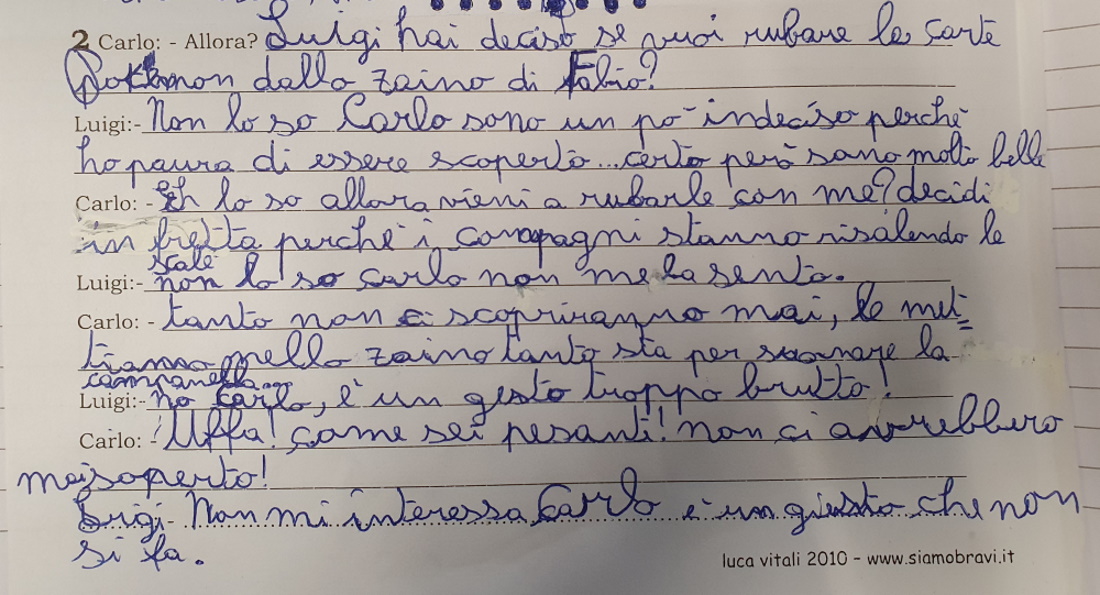 2 Carlo: - Allora? Luigi hai deciso se vuoi rubare le carte
Pokèmon dallo zaino di Fabio?
Luigi:- Non lo so Carlo sono un pò indeciso perchè
ho paura di essere scoperto...certo però sono molto belle
Carlo: - Eh lo so allora vieni a rubarle con me? decidi
in fretta perchè i compagni stanno risalendo le
scale
Luigi:- non lo so carlo non me la sento.
Carlo: - tanto non ci scopriranno mai, le met=
tiamo nello zaino tanto sta per suonare la
campanella...
Luigi:- no Carlo, è un gesto troppo brutto!
Carlo: - Uffa! come sei pesante! non ci avrebbero
mai soperto!
Luigi- Non mi interessa Carlo è un giesto che non
si fa.
luca vitali 2010 - www.siamobravi.it